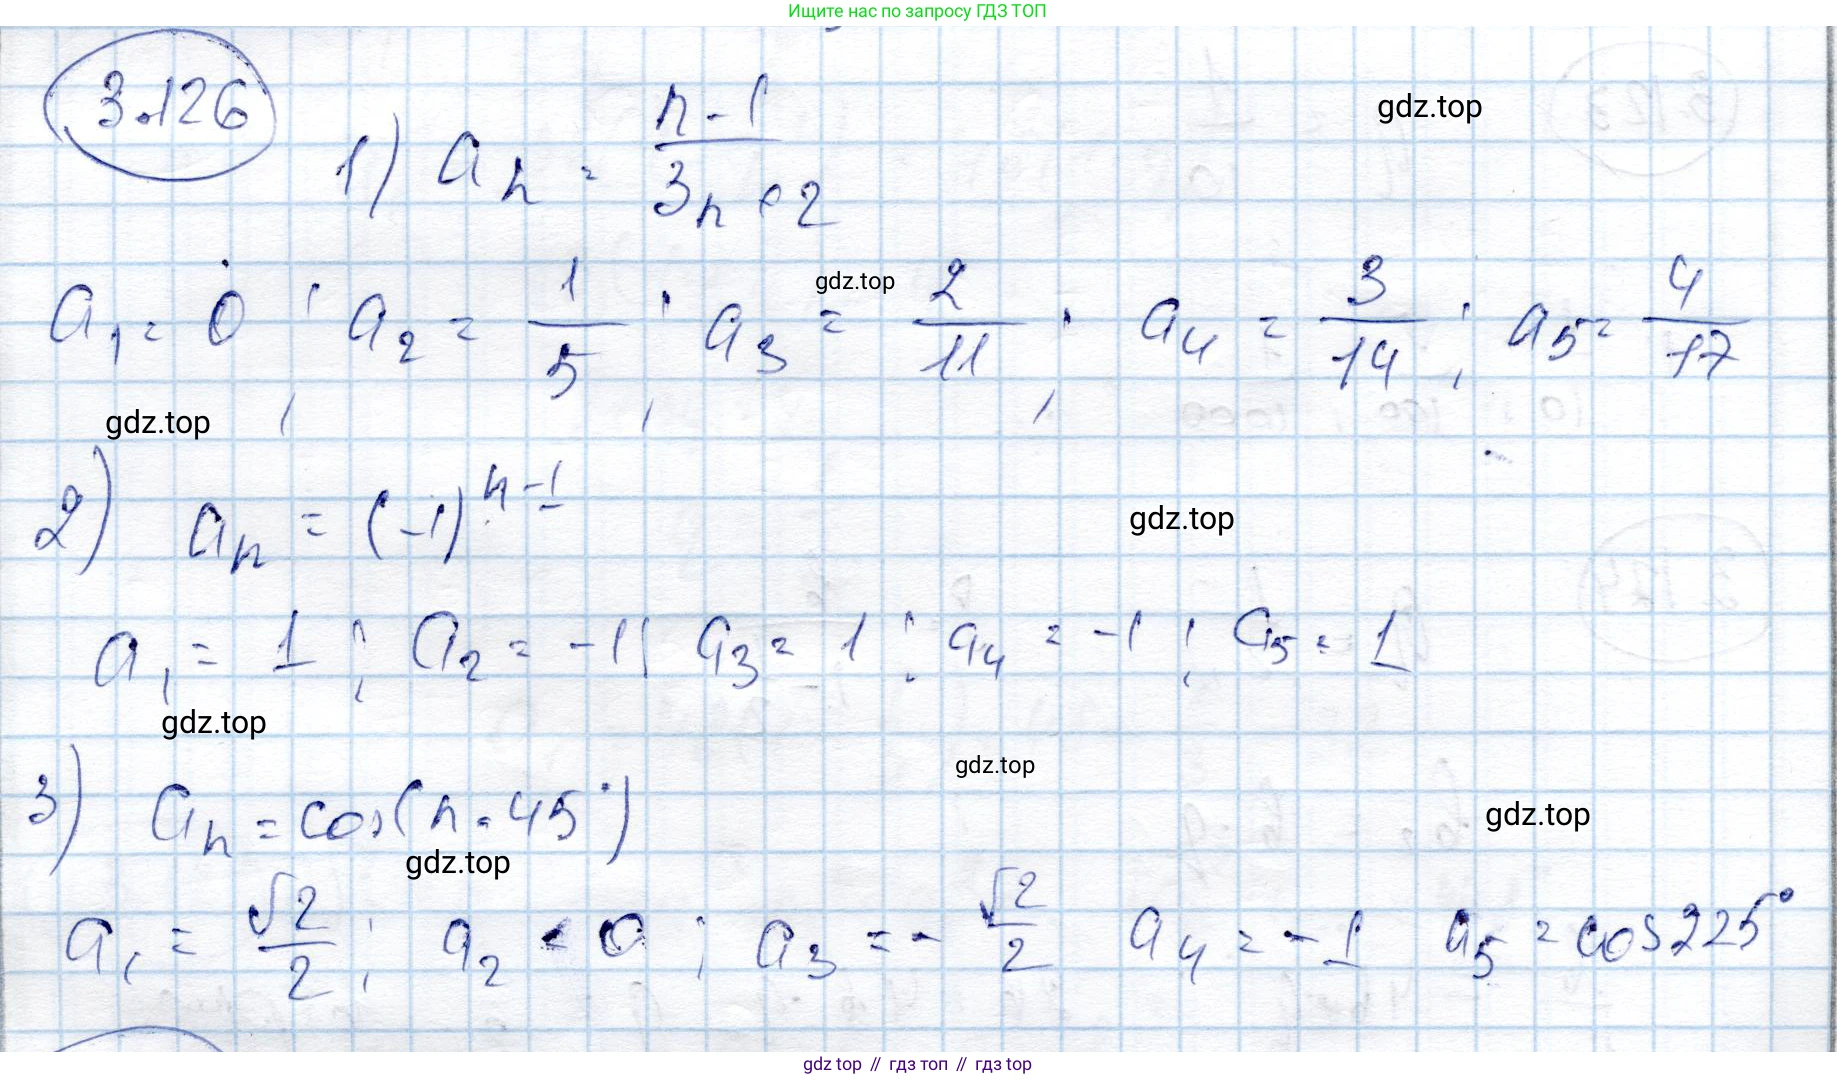 Ищите нас по запросу ГДЗ ТОП
3.126
gdz.top
1) aₙ = (n-1)/(3n+2)
a₁ = 0; a₂ = 1/5; gdz.top a₃ = 2/11; a₄ = 3/14; a₅ = 4/17
gdz.top
2) aₙ = (-1)ⁿ⁻¹
gdz.top
a₁ = 1; a₂ = -1; a₃ = 1; a₄ = -1; a₅ = 1
gdz.top
gdz.top
3) aₙ = cos(n·45°)
gdz.top
gdz.top
a₁ = √2/2; a₂ = 0; a₃ = -√2/2 a₄ = -1 a₅ = cos225°
gdz top // гдз топ // гдз top